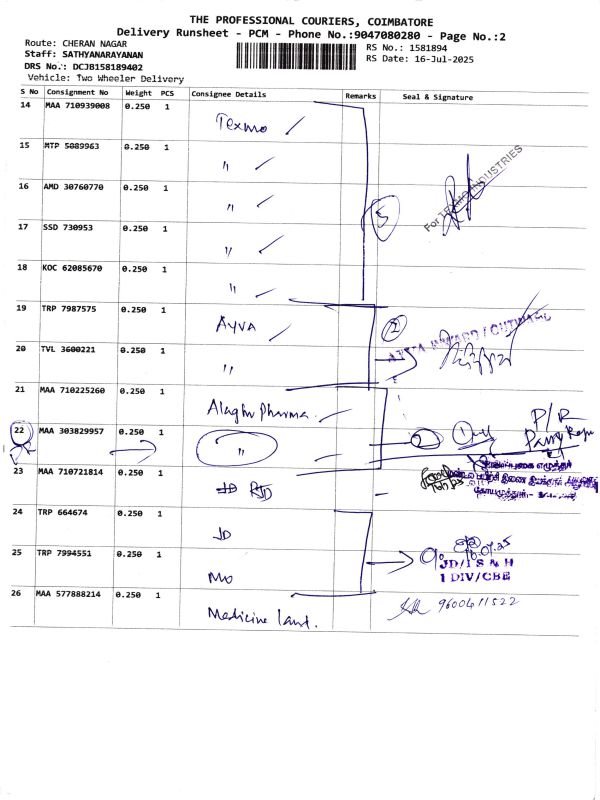 THE PROFESSIONAL COURIERS, COIMBATORE
Delivery Runsheet - PCM - Phone No.:9047080280 - Page No.:2
Route: CHERAN NAGAR
RS No.: 1581894
Staff: SATHYANARAYANAN
RS Date: 16-Jul-2025
DRS No.: DCJB158189402
Vehicle: Two Wheeler Delivery
S No Consignment No Weight PCS Consignee Details Remarks Seal & Signature
14 MAA 710939008 0.250 1 Texmo
15 MTP 5089963 0.250 1 "
For TEXMO INDUSTRIES
16 AMD 30760770 0.250 1 "
5
17 SSD 730953 0.250 1 "
18 KOC 62085670 0.250 1 "
19 TRP 7987575 0.250 1 Ayva
2
20 TVL 3600221 0.250 1 "
21 MAA 710225260 0.250 1 Alaghu Pharma
P/R
22 MAA 303829957 0.250 1 "
2
23 MAA 710721814 0.250 1 RJD
24 TRP 664674 0.250 1 JD
16.07.25
25 TRP 7994551 0.250 1 MO
JD/I S & H
1 DIV/CBE
26 MAA 577888214 0.250 1 Medicine land.
9600411522